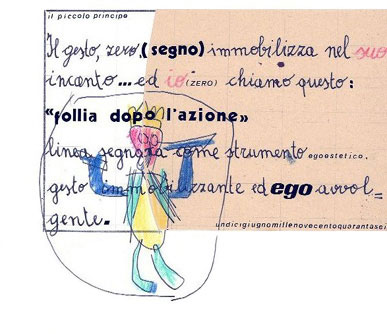 il piccolo principe
Il gesto, zero, (segno) immobilizza nel suo
incanto... ed io (ZERO) chiamo questo:
“follia dopo l'azione»
linea segnata come strumento egoestetico.
gesto immobilizzante ed ego avvol=
gente.
undicigiugnomillenovecentoquarantasei